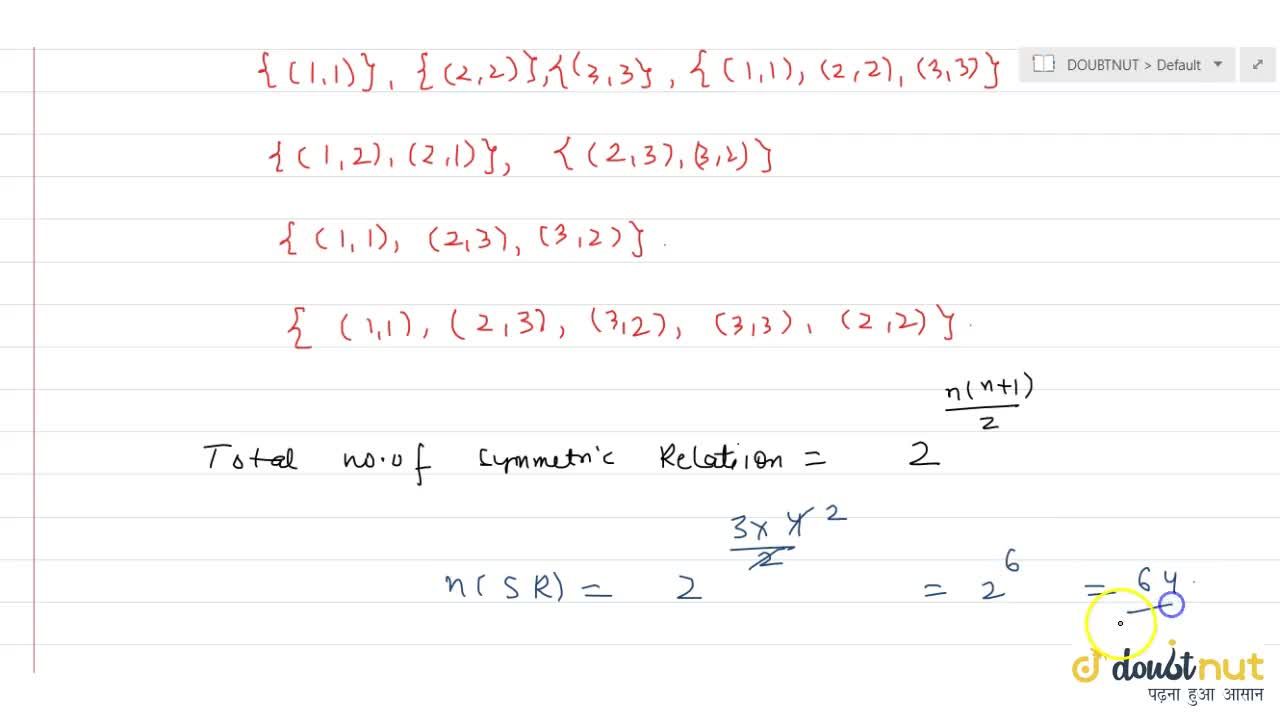 {(1,1)}, {(2,2)},{(3,3}, {(1,1), (2,2), (3,3)}
DOUBTNUT > Default
{(1,2), (2,1)}, {(2,3), (3,2)}
{(1,1), (2,3), (3,2)}.
{(1,1), (2,3), (3,2), (3,3), (2,2)}.
Total no. of Symmetric Relation = 2^(n(n+1)/2)
n(SR) = 2^(3x4/2) 2 = 2^6 = 64.
doubtnut
पढ़ना हुआ आसान